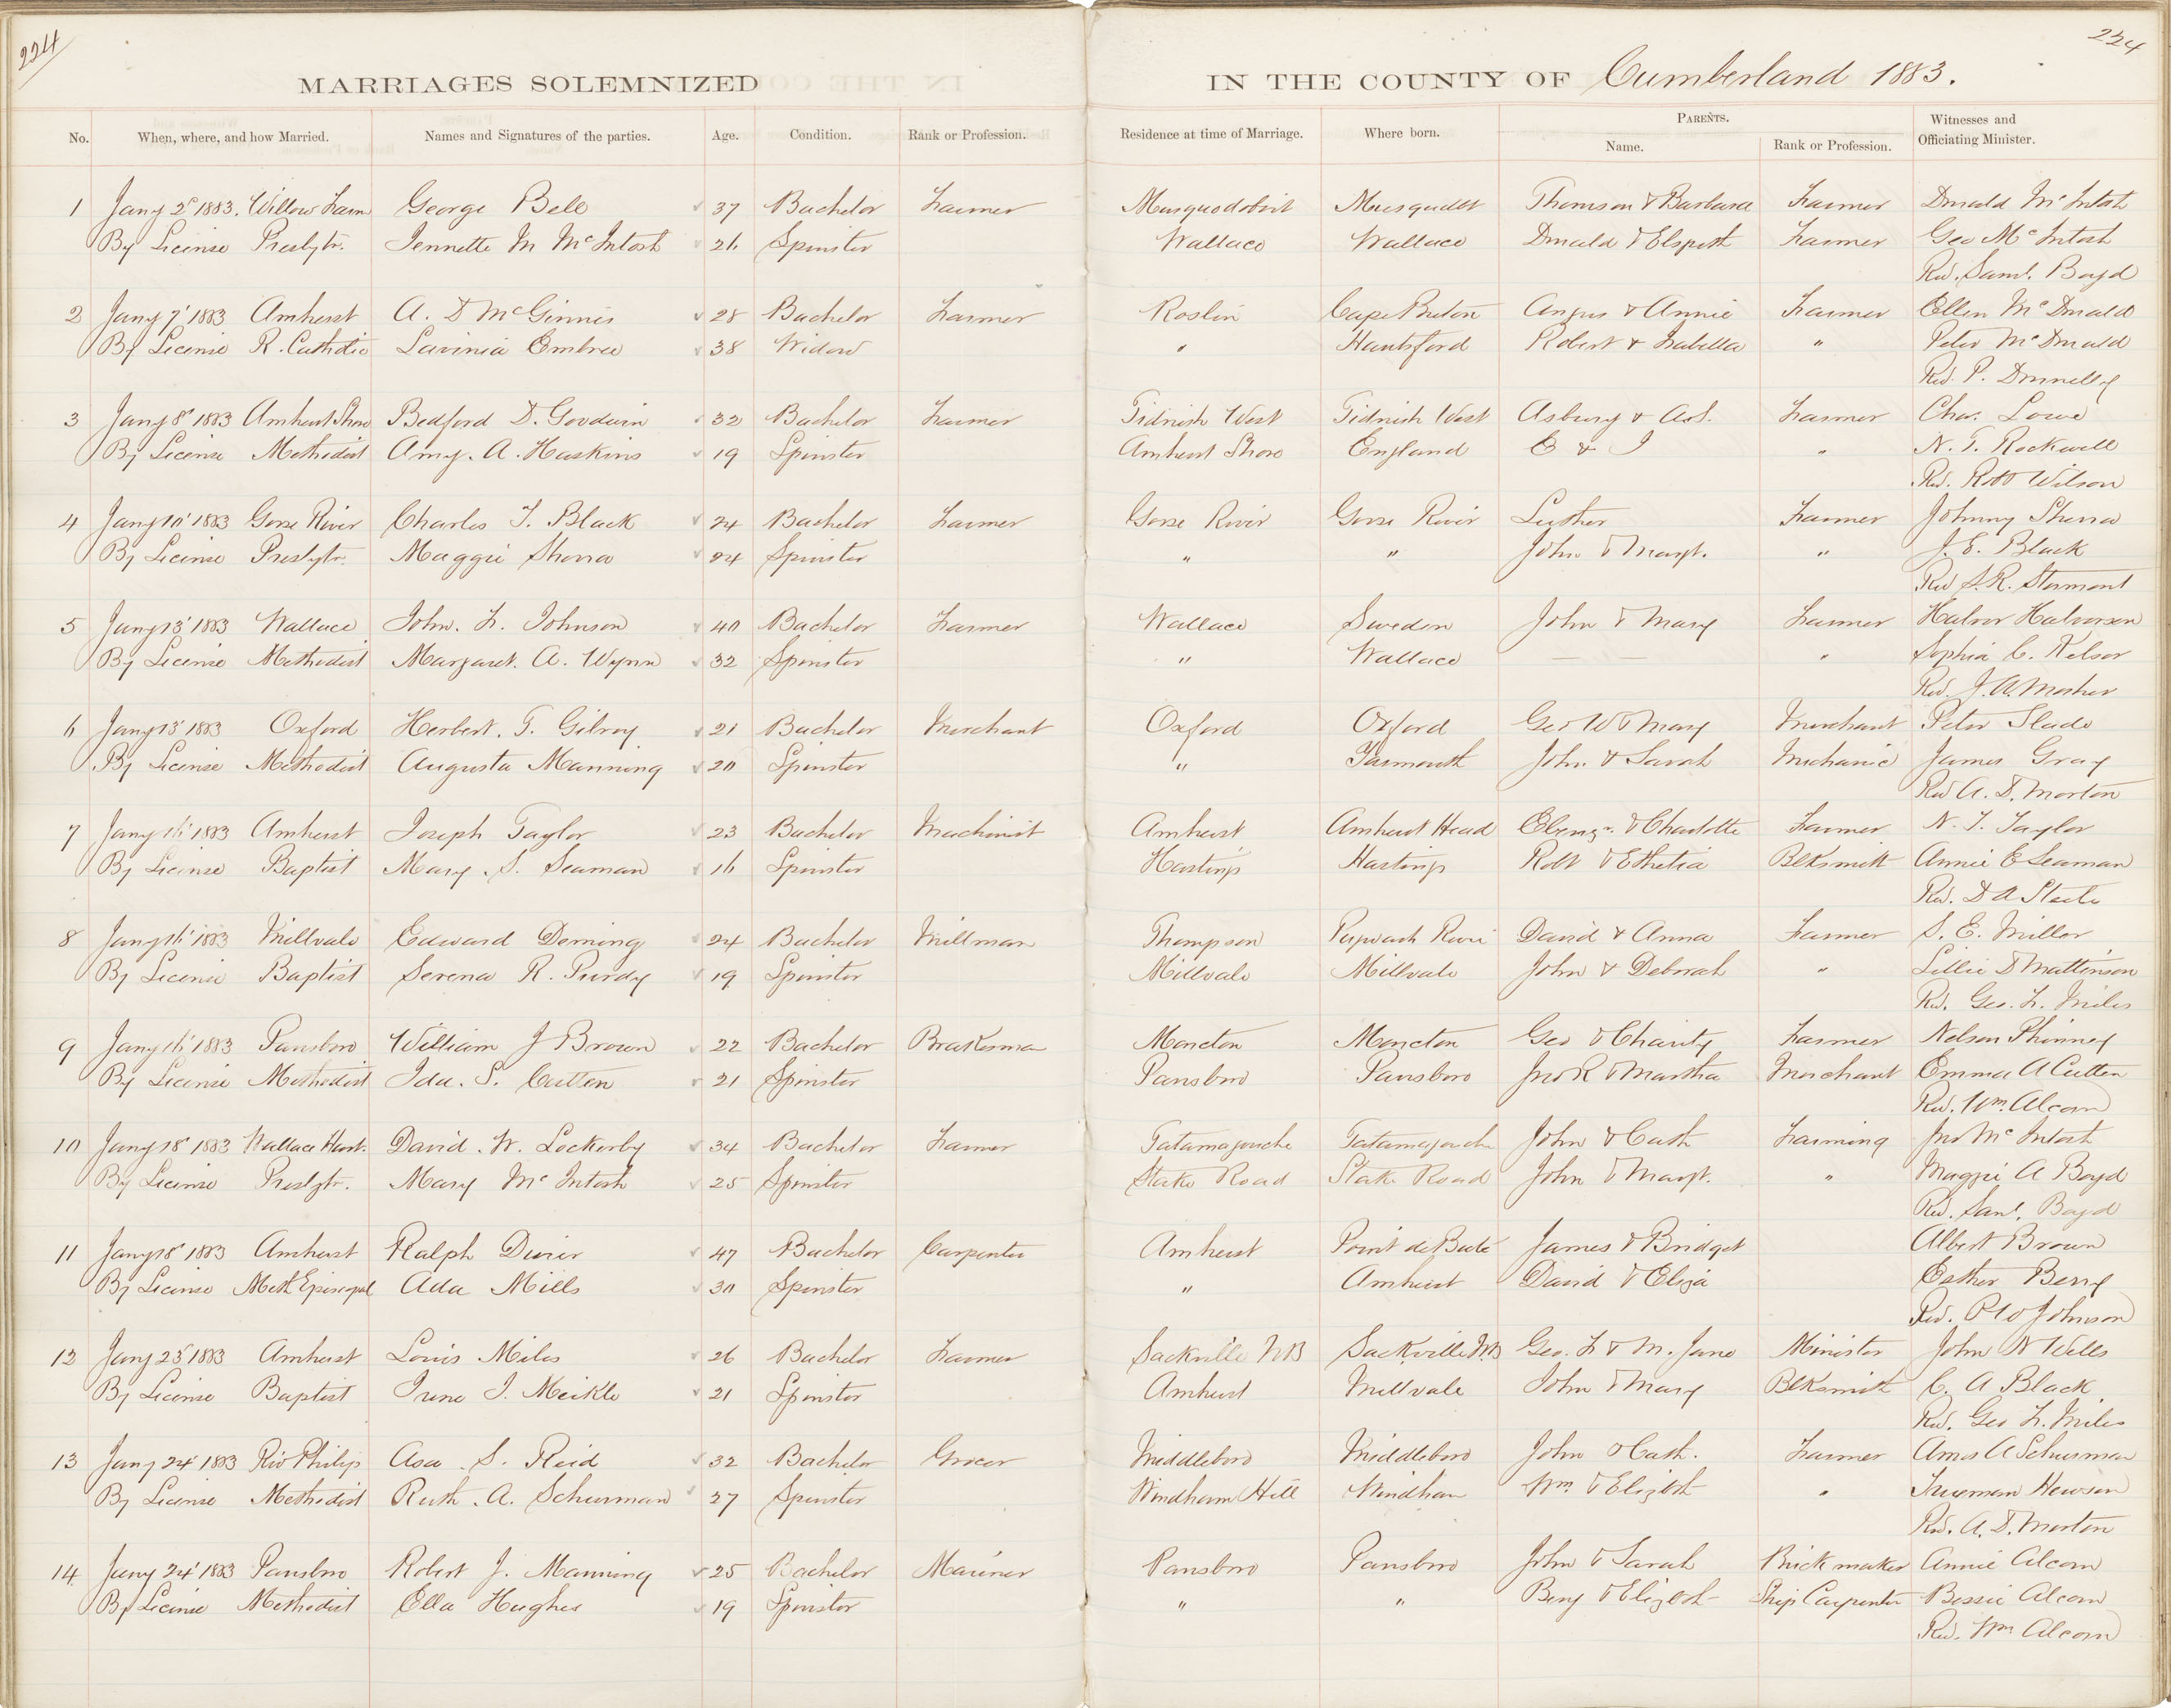 224
224
MARRIAGES SOLEMNIZED IN THE COUNTY OF Cumberland 1883.
No. When, where, and how Married. Names and Signatures of the parties. Age. Condition. Rank or Profession. Residence at time of Marriage. Where born. PARENTS. Name. Rank or Profession. Witnesses and Officiating Minister.
1 Jany 2d 1883. Willow Farm George Bell 37 Bachelor Farmer Musquodoboit Musquodt Thomson & Barbara Farmer Donald McIntosh
By License Presbytr. Jennette M McIntosh 26 Spinster Wallace Wallace Donald & Elspeth Farmer Geo McIntosh
Rev. Saml. Boyd
2 Jany 7' 1883 Amherst A. D McGinnis 28 Bachelor Farmer Roslin Cape Breton Angus & Annie Farmer Ellen McDonald
By License R. Catholic Lavinia Embree 38 Widow " Hantsford Robert & Isabella " Peter McDonald
Rev. P. Donnelly
3 Jany 8' 1883 Amherst Shore Bedford D. Goodwin 32 Bachelor Farmer Tidnish West Tidnish West Asbury & A.S. Farmer Chas. Lowe
By License Methodist Amy. A. Haskins 19 Spinster Amherst Shore England E & J " N. T. Rockwell
Rev. Robt Wilson
4 Jany 10' 1883 Goose River Charles T. Black 24 Bachelor Farmer Goose River Goose River Luther Farmer Johnny Sherra
By License Presbytr. Maggie Sherra 24 Spinster " " John & Margt. " J. E. Black
Rev S. R. Stormont
5 Jany 13' 1883 Wallace John. F. Johnson 40 Bachelor Farmer Wallace Sweden John & Mary Farmer Halvor Halvorsen
By License Methodist Margaret. A. Wynn 32 Spinster " Wallace — — " Sophia C. Kelsor
Rev. J. A. Mosher
6 Jany 13' 1883 Oxford Herbert. T. Gilroy 21 Bachelor Merchant Oxford Oxford Geo W & Mary Merchant Peter Slade
By License Methodist Augusta Manning 20 Spinster " Yarmouth John & Sarah Mechanic James Gray
Rev A. D. Morton
7 Jany 16' 1883 Amherst Joseph Taylor 23 Bachelor Machinist Amherst Amherst Head Ebenzr. & Charlotte Farmer N. T. Taylor
By License Baptist Mary. S. Seaman 16 Spinster Hastings Hastings Robt & Ethelia Blksmith Annie E Seaman
Rev. D A Steele
8 Jany 16' 1883 Millvale Edward Deming 24 Bachelor Millman Thompson Pugwash River David & Anna Farmer S. E. Miller
By License Baptist Serena R. Purdy 19 Spinster Millvale Millvale John & Deborah " Lillie D Mattinson
Rev. Geo. F. Miles
9 Jany 16' 1883 Parrsboro William J Brown 22 Bachelor Brakesman Moncton Moncton Geo & Charity Farmer Nelson Phinney
By License Methodist Ida. S. Cutten 21 Spinster Parrsboro Parrsboro Jno R & Martha Merchant Emma A Cutten
Rev. Wm. Alcorn
10 Jany 18' 1883 Wallace Harb. David. W. Lockerby 34 Bachelor Farmer Tatamagouche Tatamagouche John & Cath Farming Jno McIntosh
By License Presbytr. Mary McIntosh 25 Spinster Stake Road Stake Road John & Margt. " Maggie A Boyd
Rev. Saml. Boyd
11 Jany 18' 1883 Amherst Ralph 47 Bachelor Carpenter Amherst Point de Bute James & Bridget Albert Brown
By License Meth Episcopal Ada Mills 30 Spinster " Amherst David & Eliza Esther Berry
Rev. P W Johnson
12 Jany 23' 1883 Amherst Louis Miles 26 Bachelor Farmer Sackville NB Sackville N.B Geo. F & M. Jane Minister John N Wells
By License Baptist Irene I. Meikle 21 Spinster Amherst Millvale John & Mary Blksmith C. A Black
Rev. Geo F. Miles
13 Jany 24' 1883 Riv Philip Asa. S. Reid 32 Bachelor Grocer Middleboro Middleboro John & Cath. Farmer Amos A Schurman
By License Methodist Ruth. A. Schurman 27 Spinster Windham Hill Windham Wm & Elizbth " Trueman Hewson
Rev. A. D. Morton
14 Jany 24' 1883 Parrsboro Robert J. Manning 25 Bachelor Mariner Parrsboro Parrsboro John & Sarah Brick maker Annie Alcorn
By License Methodist Ella Hughes 19 Spinster " " Benj & Elizbth Ship Carpenter Bessie Alcorn
Rev. Wm Alcorn